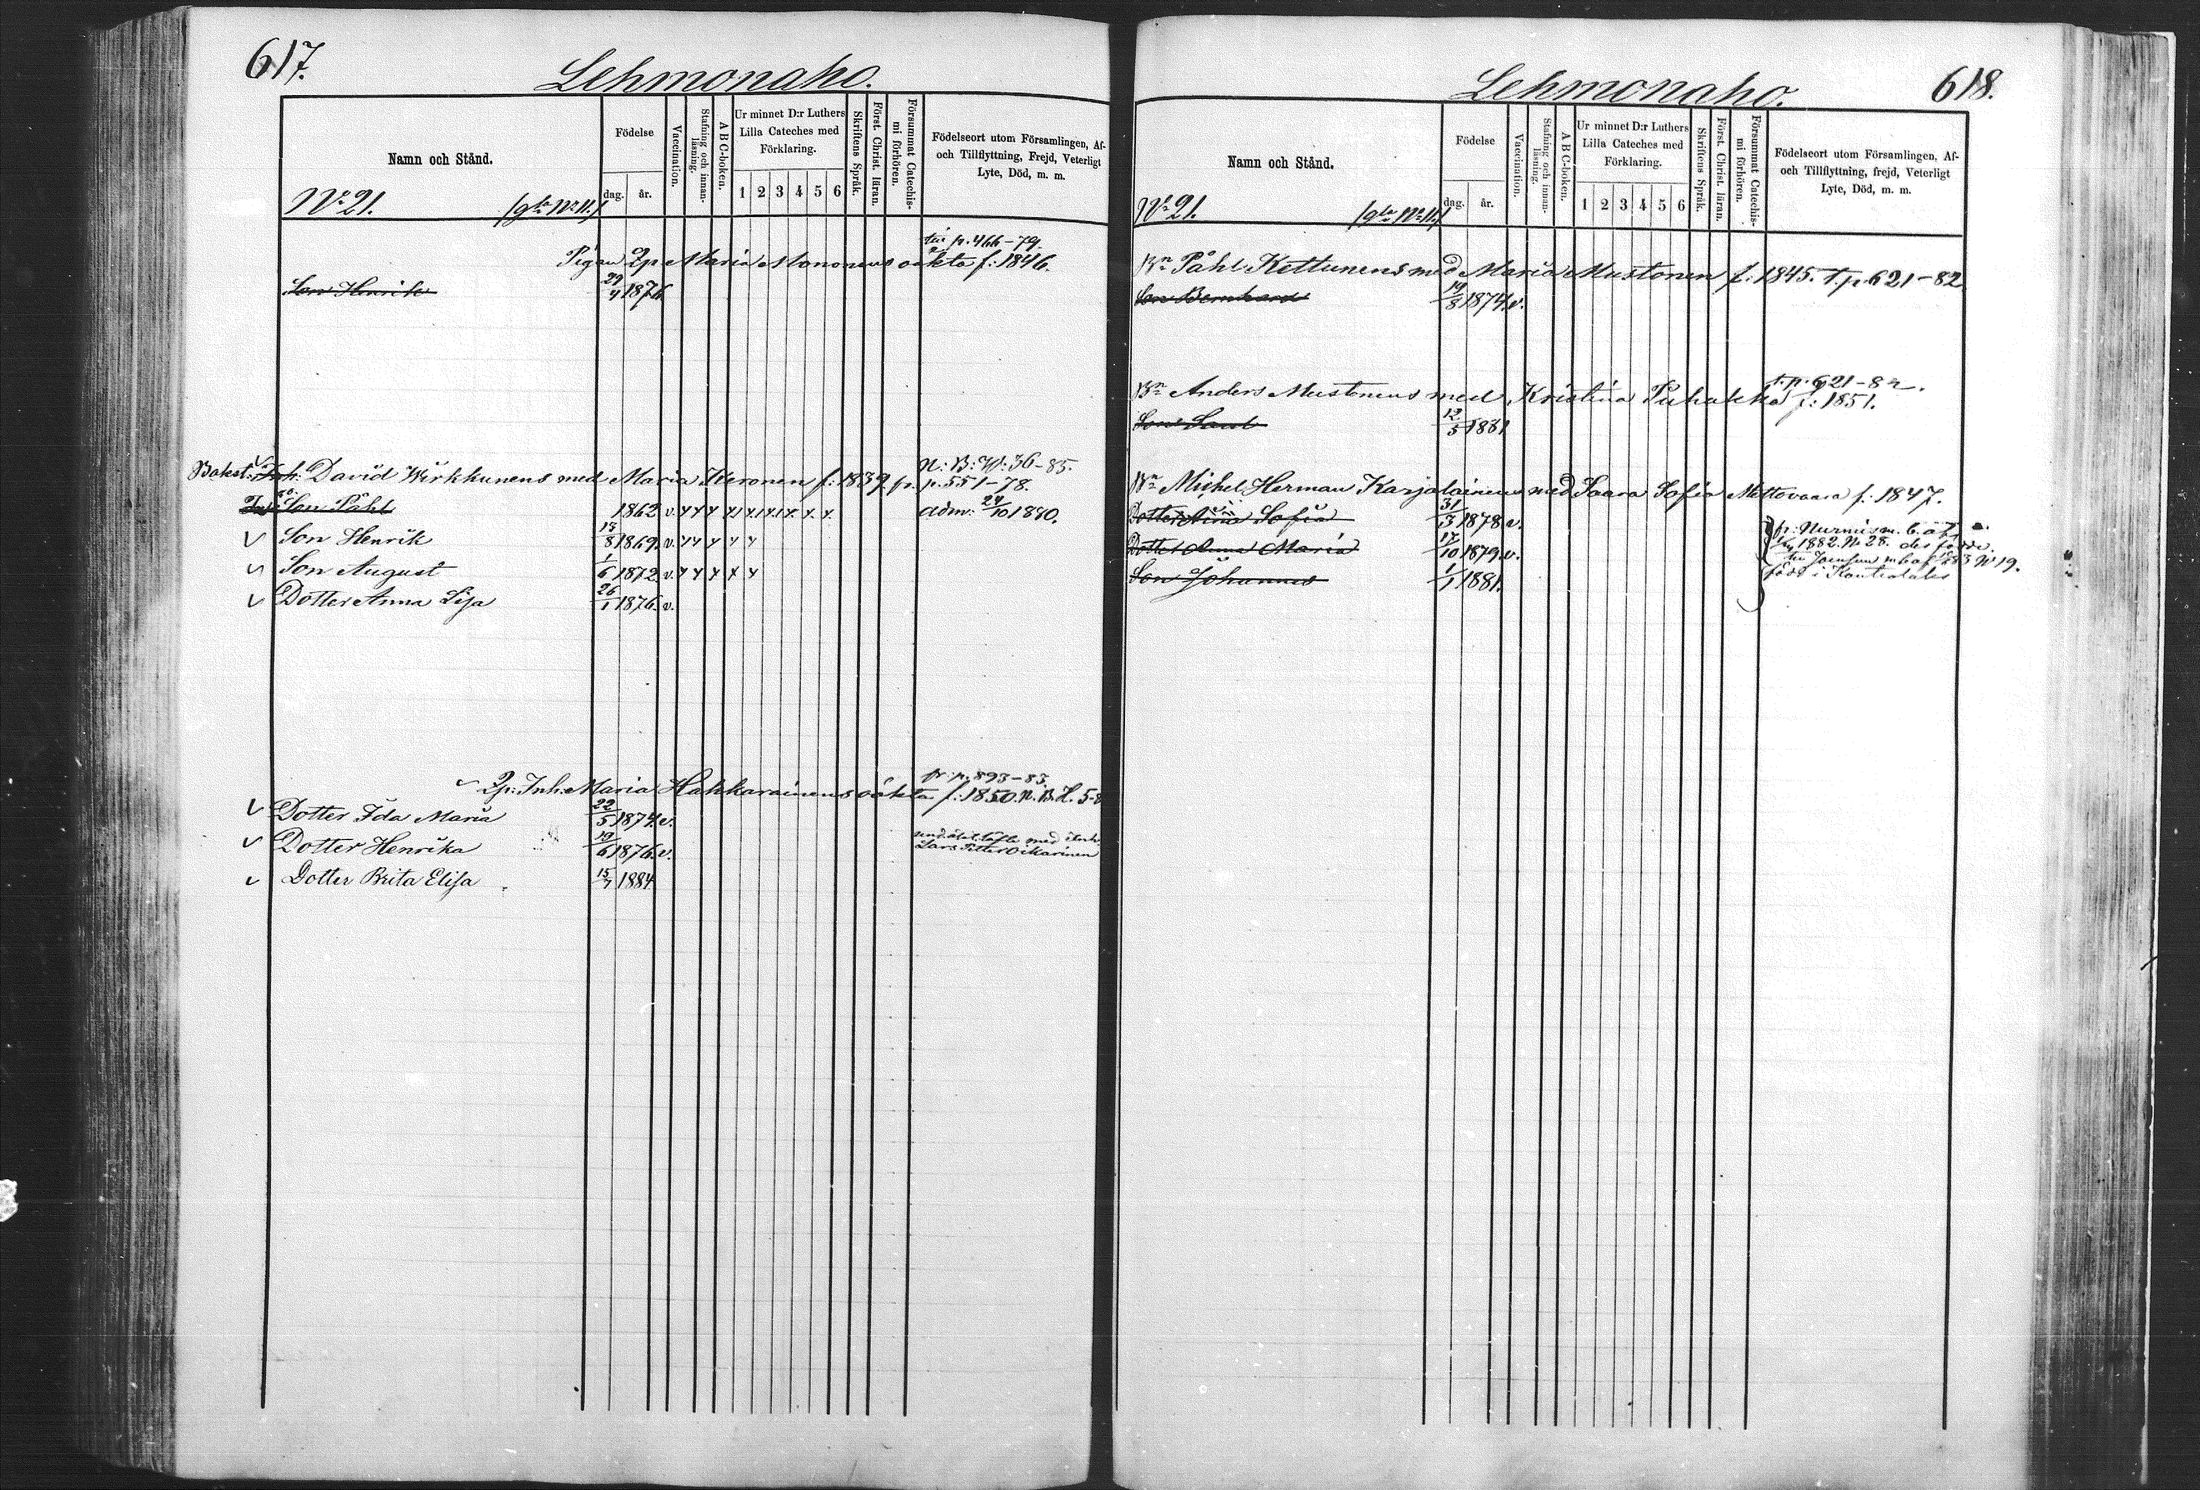 617.
Lehmonaho.
Namn och Stånd.
Födelse
dag.
år.
Vaccination.
Stafning och innan-läsning.
A B C-boken.
Ur minnet D:r Luthers
Lilla Cateches med
Förklaring.
1 2 3 4 5 6
Skriftens Språk.
Först. Christ. läran.
Försummat Catechis-mi förhören.
Födelseort utom Församlingen, Af-
och Tillflyttning, Frejd, Veterligt
Lyte, Död, m. m.
No 21.
till p. 466-79.
Pigan Maria Mononens oäkta f: 1846.
Son Henrik 29/4 1876
N: B: W: 36-85.
Bakst: Inh: David Wirkkunens med Maria Keronen f: 1839 fr. p. 551-78.
Son Påhl 1862 v. adm: 24/10 1880.
Son Henrik 13/8 1869. v.
Son August 1/6 1872 v.
Dotter Anna Lisa 26/1 1876. v.
fr: p. 893-83.
Inh: Maria Hakkarainens oäkta f: 1850. N. B. H. 5-8
Dotter Ida Maria 22/5 1874. v.
Dotter Henrika 19/6 1876. v.
Dotter Brita Elisa 15/7 1884
618.
Lehmonaho.
Namn och Stånd.
Födelse
dag.
år.
Vaccination.
Stafning och innan-läsning.
A B C-boken.
Ur minnet D:r Luthers
Lilla Cateches med
Förklaring.
1 2 3 4 5 6
Skriftens Språk.
Först. Christ. läran.
Försummat Catechis-mi förhören.
Födelseort utom Församlingen, Af-
och Tillflyttning, frejd, Veterligt
Lyte, Död, m. m.
No 21.
Bn Påhl Kettunens med Maria Mustonen f: 1845. t. p. 621-82
Son Bernhard 19/8 1874. v.
t. p. 621-82.
Bn Anders Mustonens med Kristina Puhakka f: 1851.
12/5 1881
Bn Michel Herman Karjalainens med Saara Sofia Mettovaara f: 1847.
Dotter Sofia 31/3 1878 v.
Dotter Anna Maria 17/10 1879. v.
Son Johannes 1/1 1881.
fr: Nurmis m. b. af
1882. No 28.
född i Kontiolaks